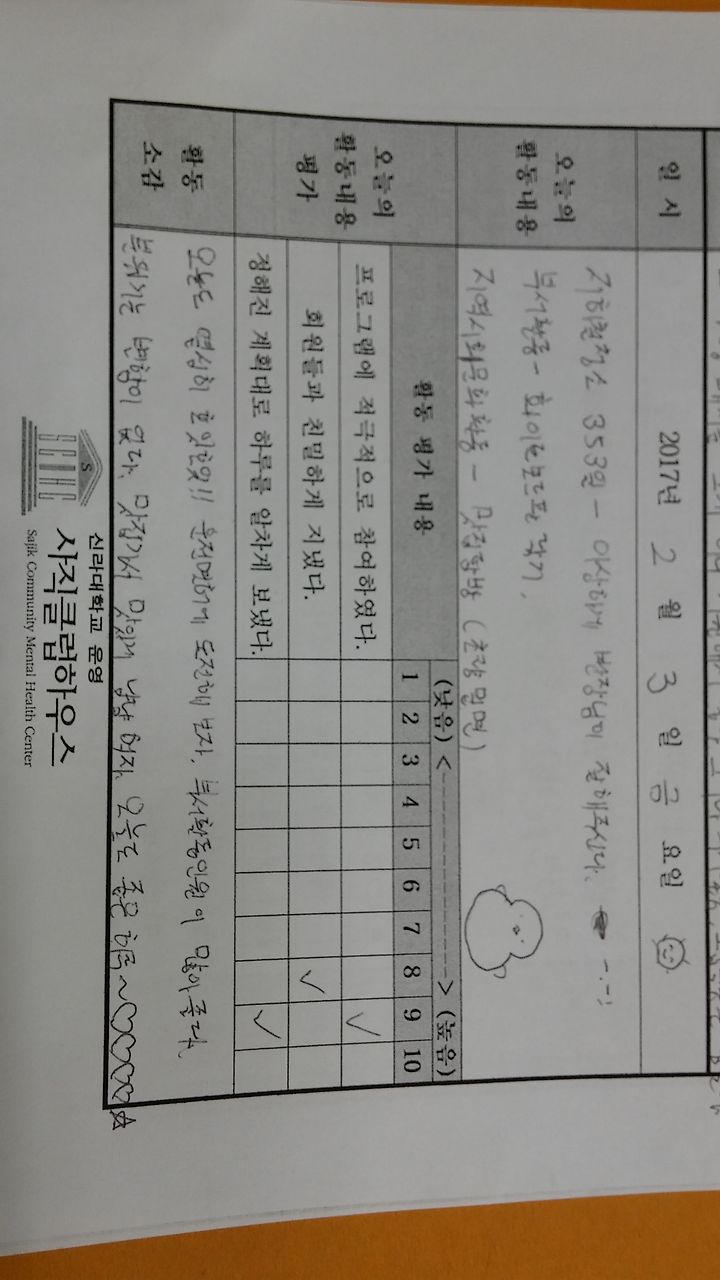 일 시 2017년 2 월 3 일 금 요일
오늘의 활동내용
지하철청소 353일 - 이상하게 반장님이 잘해주신다.
부서활동 - 화이트보드판 닦기.
지역사회문화활동 - 맛집탐방 (춘장 밀면)
오늘의 활동내용 평가
활동 평가 내용
(낮음) <--------------------> (높음)
1 2 3 4 5 6 7 8 9 10
프로그램에 적극적으로 참여하였다. ✓
회원들과 친밀하게 지냈다. ✓
정해진 계획대로 하루를 알차게 보냈다. ✓
활동 소감
오늘도 열심히 !! 운전면허에 도전해 보자. 부서활동인원이 많이 줄다.
분위기는 변함이 없다. 맛집가서 맛있게 냠냠 하자. 오늘도 좋은 하루~♡♡♡♡♡☆
신라대학교 운영
사직클럽하우스
Sajik Community Mental Health Center
S
CMHC